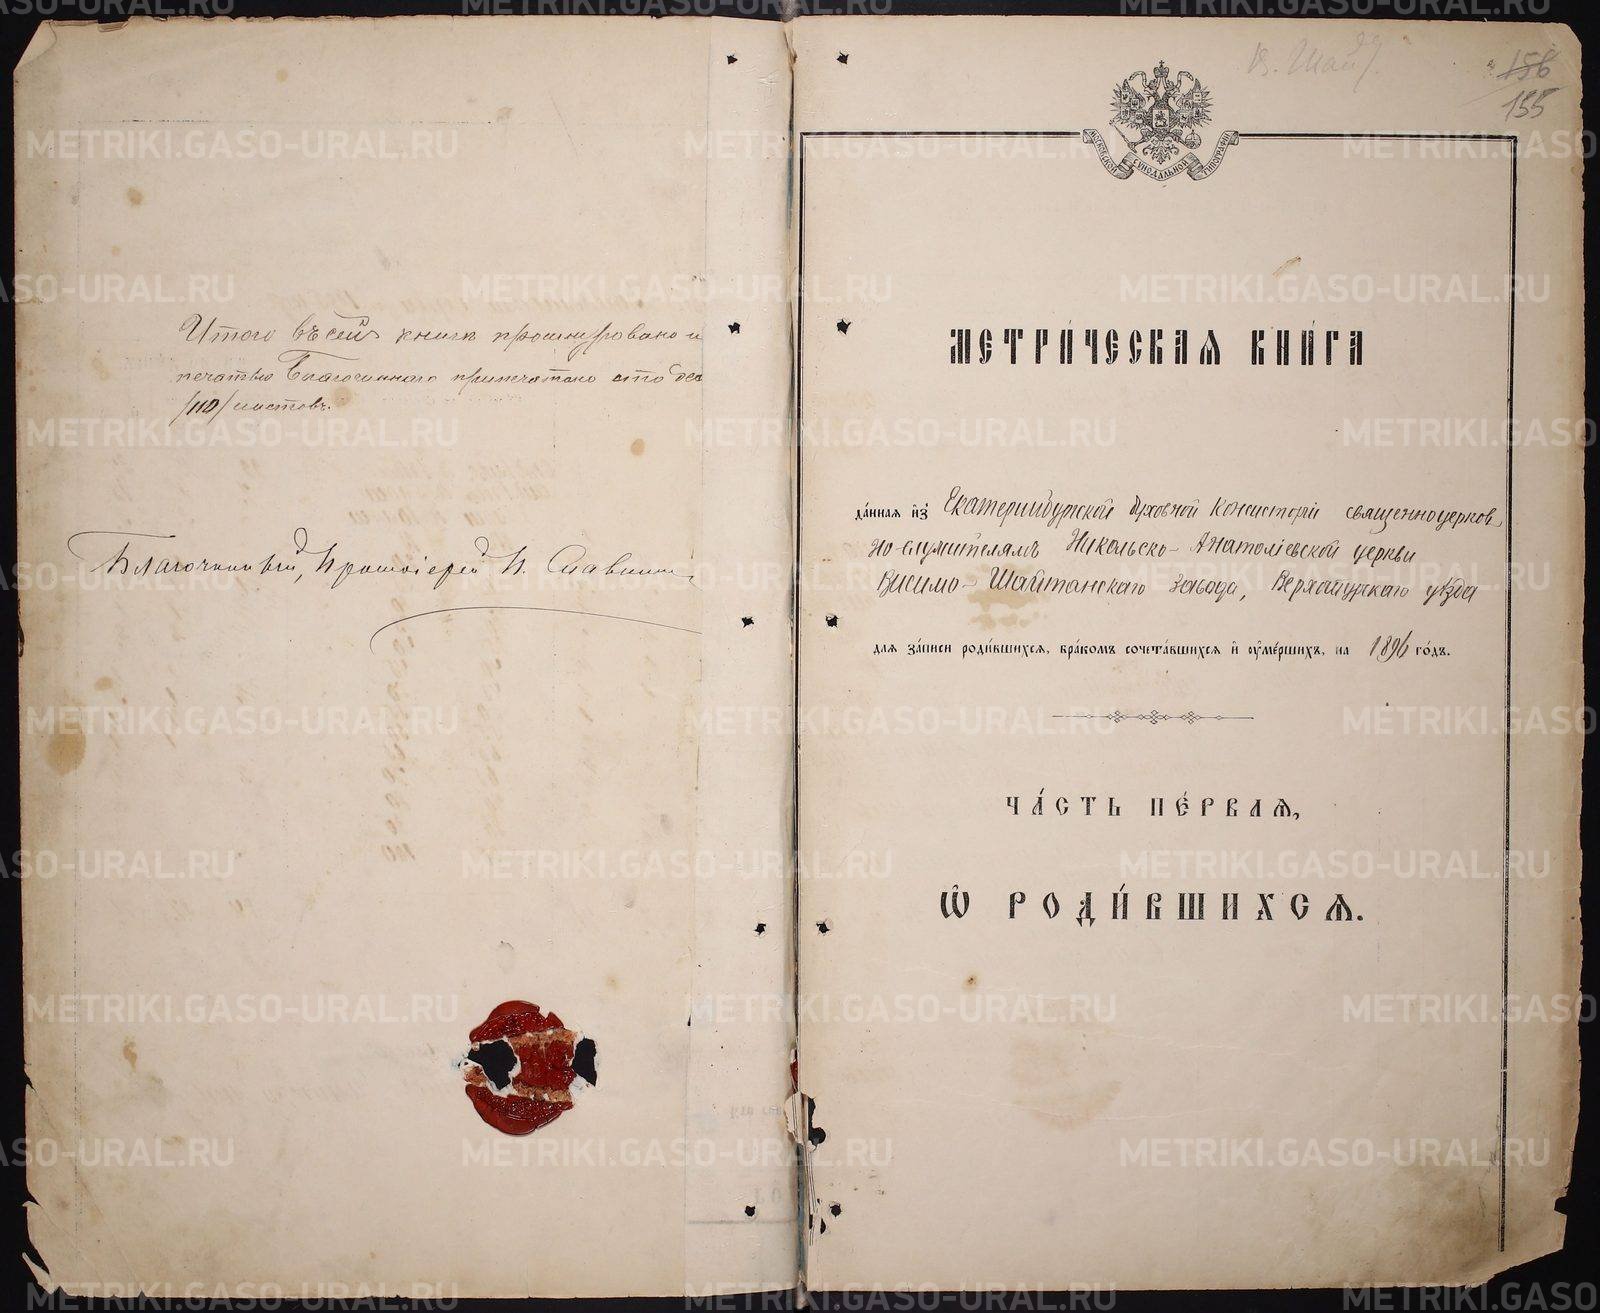 Итого въ сей книгѣ прошнуровано и
печатью Благочиннаго припечатано сто дес
/110/ листовъ.
Благочинный, Протоіерей
В. Шайт.
156
155
МОСКОВСКОЙ СѴНОДАЛЬНОЙ ТИПОГРАФІИ
МЕТРИ́ЧЕСКАЯ КНИ́ГА
да́нная и҆з̾ Екатеринбургской Духовной Консисторіи священноцерков
но-служителямъ Николько-Анатоліевской церкви
Висимо-Шайтанскаго завода, Верхотурскаго уѣзда
для за́писи роди́вшихся, бра́комъ сочета́вшихся и҆ ᲂу҆ме́ршихъ, на 1896 го́дъ.
ЧА́СТЬ ПЕ́РВАЯ,
Ѡ҆ РОДИ́ВШИХСЯ.
METRIKI.GASO-URAL.RU